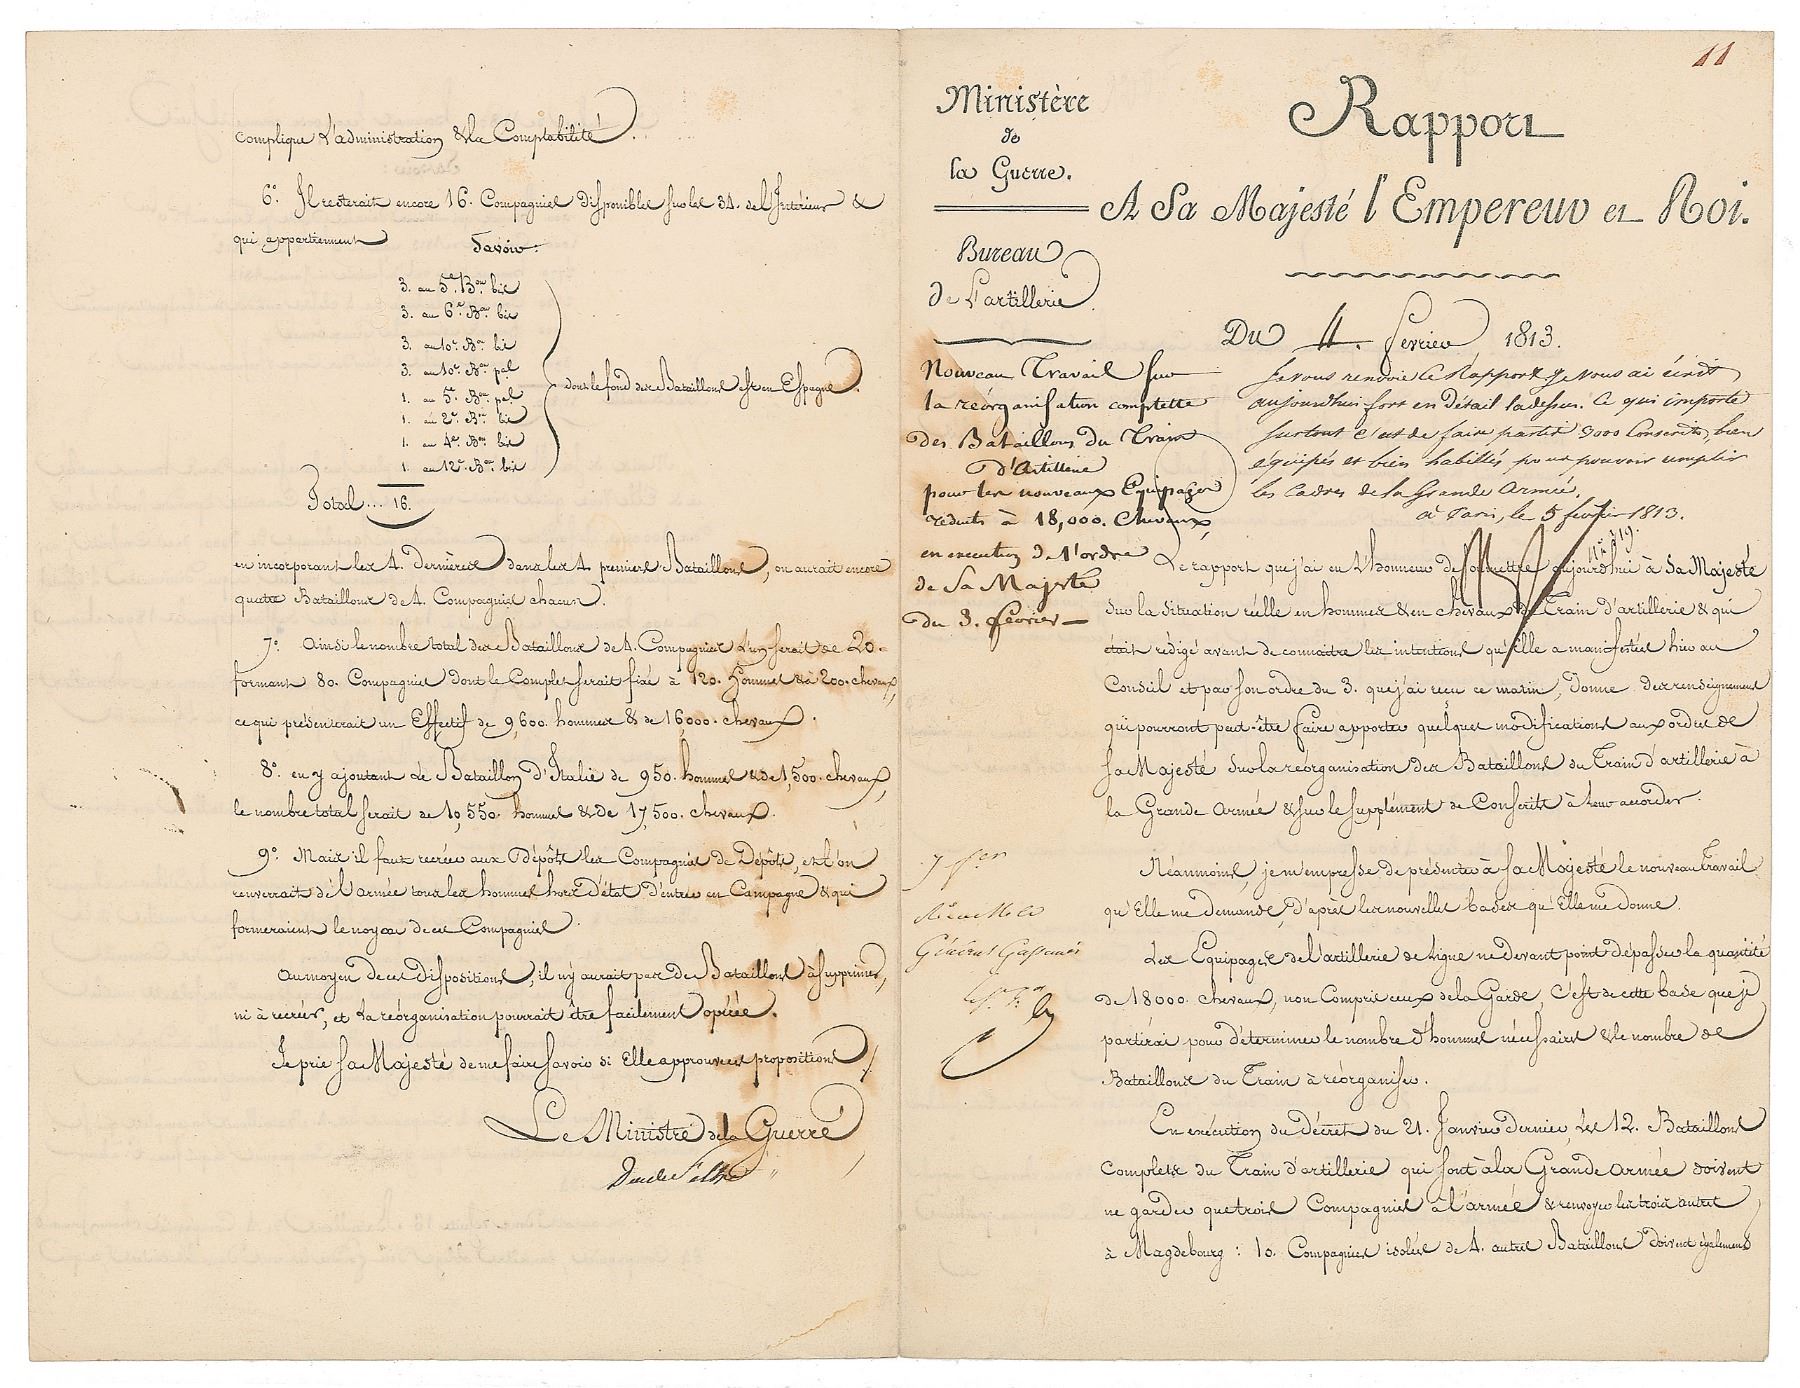 complique l'administration & la Comptabilité.
6°. Il resterait encore 16. Compagnies disponibles sur les 34. de l'Intérieur &
qui appartiennent Savoir:
3. au 5e. Bon. bis
3. au 6e. Bon. bis
3. au 10e. Bon. bis
3. au 10e. Bon. pal
1. au 5e. Bon. pal
1. au 2e. Bon. bis
1. au 4e. Bon. bis
1. au 12e. Bon. bis
dont le fond des Bataillons est en Espagne.
Total ... 16.
en incorporant les 4. dernières dans les 4. premiers Bataillons, on aurait encore
quatre Bataillons de 4. Compagnies chacun.
7°. Ainsi le nombre total des Bataillons de 4. Compagnies l'un serait de 20.
formant 80. Compagnies dont le Complet serait fixé à 120. hommes & à 200. chevaux,
ce qui présenterait un Effectif de 9,600. hommes & de 16,000. chevaux.
8°. en y ajoutant le Bataillon d'Italie de 950. hommes & de 1,500. chevaux,
le nombre total serait de 10,550. hommes & de 17,500. chevaux.
9°. Mais il faut recréer aux Dépôts les Compagnies de Dépôts, et l'on
renverrait de l'armée tous les hommes hors d'état d'entrer en Campagne & qui
formeraient le noyau de ces Compagnies.
Au moyen de ces dispositions, il n'y aurait pas de Bataillons à supprimer,
ni à recréer, et la réorganisation pourrait être facilement opérée.
Je prie Sa Majesté de me faire savoir si Elle approuve ces propositions
Le Ministre de la Guerre
Duc de Feltre
11
Ministère
de
la Guerre.
Bureau
de l'artillerie
Rapport
A Sa Majesté l'Empereur et Roi.
Du 4. fevrier 1813.
Nouveau Travail sur
la réorganisation complette
des Bataillons du Train
d'Artillerie
pour les nouveaux Equipages
réduits à 18,000. Chevaux,
en execution de l'ordre
de Sa Majesté
du 3. fevrier
Je vous renvoie ce Rapport. Je vous ai écrit
aujourd'hui fort en détail la dessus. Ce qui importe
surtout c'est de faire partir 9000 Conscrits, bien
équipés et bien habillés pour pouvoir remplir
les Cadres de la Grande Armée.
à Paris, le 5 fevrier 1813.
Le rapport que j'ai eu l'honneur de soumettre aujourd'hui à Sa Majesté
sur la situation réelle en hommes & en chevaux du Train d'artillerie & qui
était rédigé avant de connaître les intentions qu'Elle a manifestées hier au
Conseil et par son ordre du 3. que j'ai reçu ce matin, donne des renseignements
qui pourront peut-être faire apporter quelques modifications aux ordres de
Sa Majesté sur la réorganisation des Bataillons du Train d'artillerie à
la Grande Armée & sur le supplément de Conscrits à leur accorder.
Néanmoins, je m'empresse de présenter à Sa Majesté le nouveau Travail
qu'Elle me demande, d'après les nouvelles bases qu'Elle me donne.
Les Equipages de l'artillerie de ligne ne devant point dépasser la quantité
de 18000. chevaux, non Compris ceux de la Garde, c'est de cette base que je
partirai pour déterminer le nombre d'hommes nécessaires & le nombre de
Bataillons du Train à réorganiser.
En exécution du décret du 21. Janvier dernier, les 12. Bataillons
Complets du Train d'artillerie qui sont à la Grande Armée doivent
ne garder que trois Compagnies à l'armée & renvoyer les trois autres
à Magdebourg : 10. Compagnies isolées de 4. autres Bataillons doivent également
7 fer
Général Gassendi